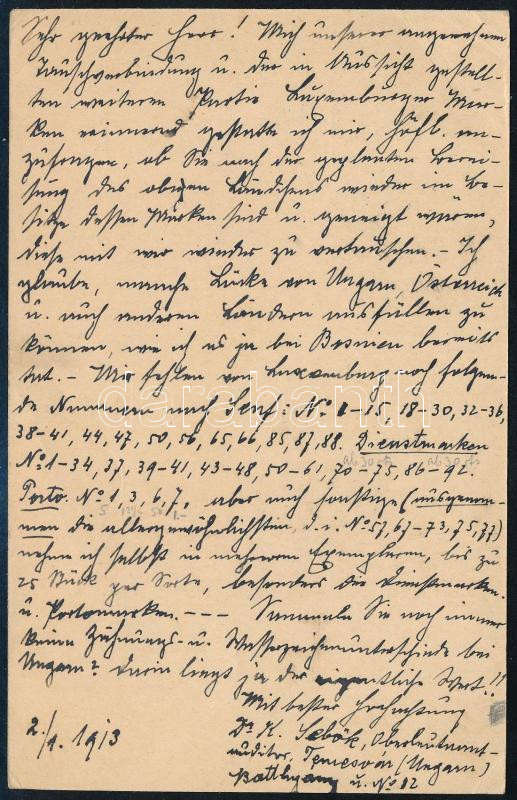 Sehr geehrter Herr! Mich unserer angenehmen
Tauschverbindung u. der in Aussicht gestell-
ten weiteren Partie Luxemburger Mar-
ken erinnernd gestatte ich mir, höfl. an-
zufragen, ob Sie nach der geplanten Berei-
sung des obigen Ländchens wieder im Be-
sitze dessen Marken sind u. geneigt wären,
diese mit mir wieder zu vertauschen. – Ich
glaube, manche Lücke von Ungarn, Österreich
u. auch anderen Ländern ausfüllen zu
können, wie ich es ja bei Bosnien bereits
tat. – Mir fehlen von Luxemburg noch folgen-
de Nummern nach Senf: No 1–15, 18–30, 32–36,
38–41, 44, 47, 50, 56, 65, 66, 85, 87, 88. Dienstmarken
No 1–34, 37, 39–41, 43–48, 50–61, 70–75, 86–92.
Porto. No 1, 3, 6, 7, aber auch sonstige (ausgenom-
men die allergewöhnlichsten, d. i. No 57, 67–73, 75, 77)
nehme ich selbst in mehreren Exemplaren, bis zu
25 Stück per Sorte, besonders die Dienstmarken
u. Portomarken. – – – Sammeln Sie noch immer
keine Zähnungs- u. Wasserzeichenunterschiede bei
Ungarn? Darin liegt ja der eigentliche Wert!!
Mit bester Hochachtung
2./1. 1913 Dr K. Sebök, Oberleutnant-
auditor, Temesvár (Ungarn)
u. No 12
darabanth